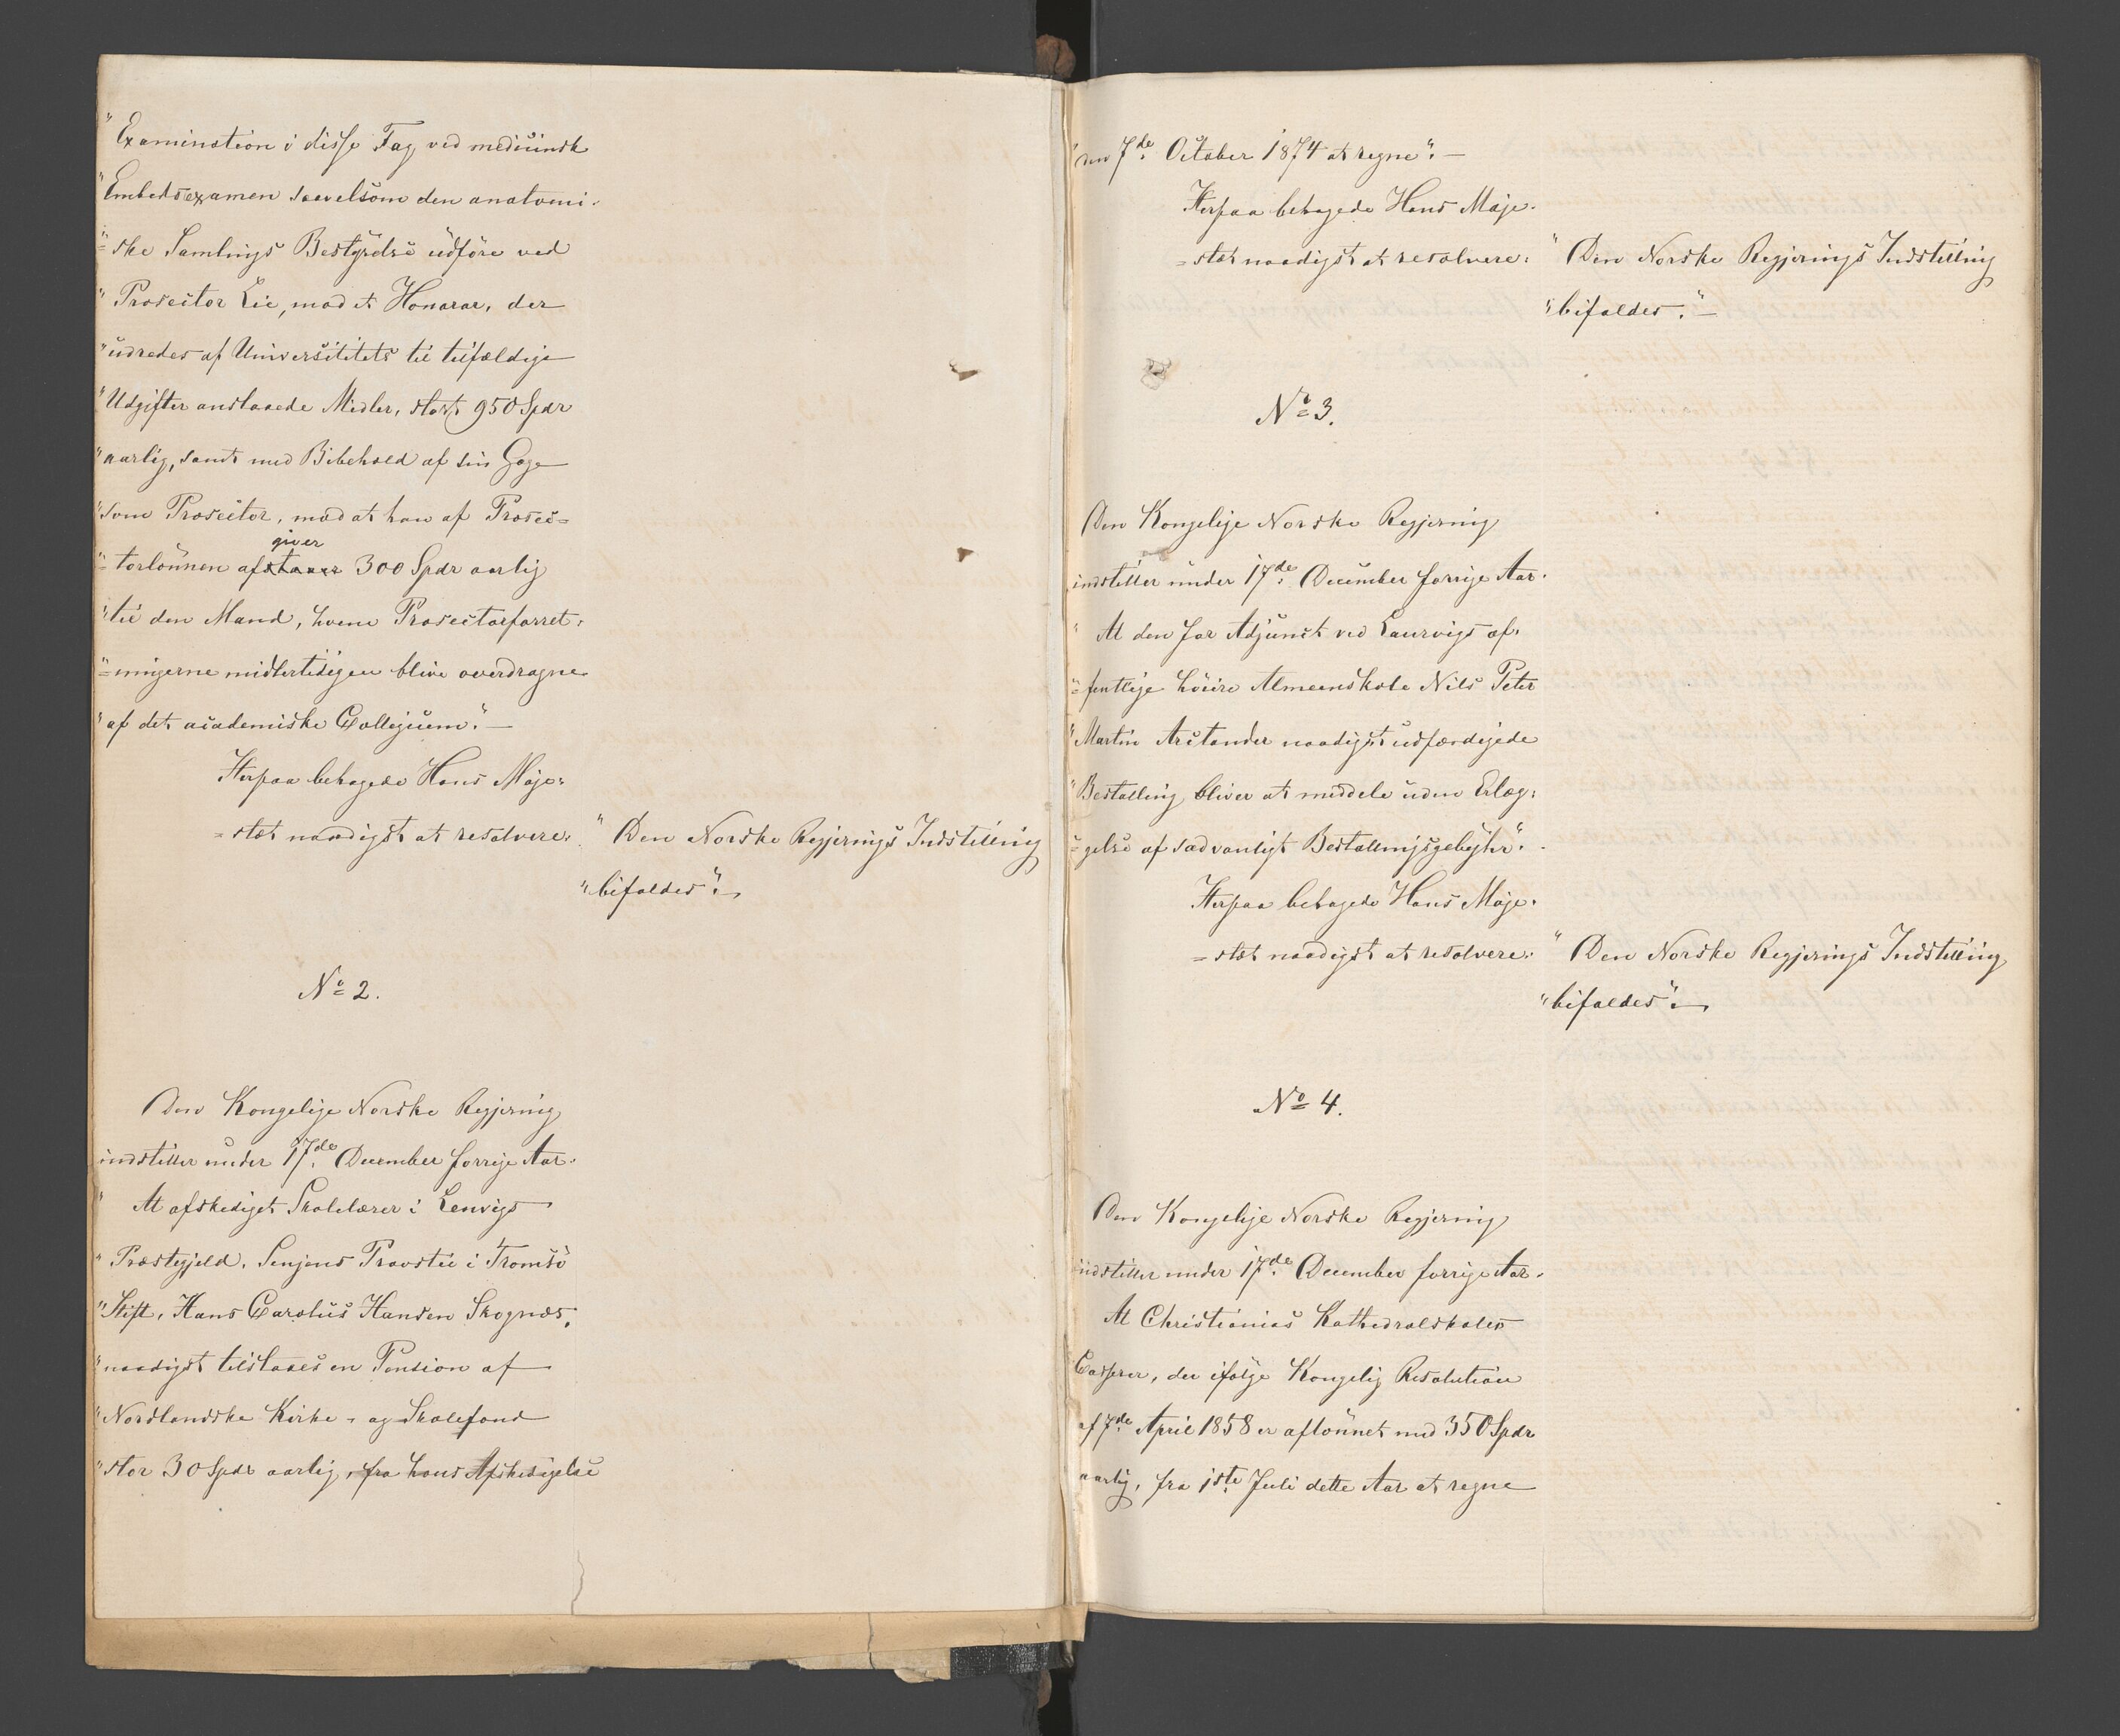 "Examination i disse Fag ved medicinsk
"Embedsexamen saavelsom den anatomi-
"=ske Samlings Bestyrelse udføre ved
"Prosector Lie, mod et Honorar, der
"udredes af Universitetets til tilfældige
"Udgifter anslaaede Midler, stort 950 Spdr
"aarlig, samt med Bibehold af sin Gage
"som Prosector, mod at han af Prosec=
giver
"=torlönnen afstaaer 300 Spdr aarlig
"til den Mand, hvem Prosectorforret-
"=ningerne midlertidigen blive overdragne
"af det academiske Collegium". —
Herpaa behagede Hans Maje-
=stæt naadigst at resolvere: "Den Norske Regjerings Indstilling
"bifaldes". —
No 2.
Den Kongelige Norske Regjering
indstiller under 17de December forrige Aar.
"At afskediget Skolelærer i Lenvigs
"Præstegjeld, Senjens Provsti i Tromsö
"Stift, Hans Carolus Hansen Skognæs,
"naadigst tilstaaes en Pension af
"Nordlandske Kirke- og Skolefond
"stor 30 Spdr aarlig, fra hans Afskedigelse
"den 7de October 1874 at regne". —
Herpaa behagede Hans Maje-
=stæt naadigst at resolvere: "Den Norske Regjerings Indstilling
"bifaldes." —
No 3.
Den Kongelige Norske Regjering
indstiller under 17de December forrige Aar.
"At den for Adjunct ved Laurvigs of-
"=fentlige höiere Almeenskole Nils Peter
"Martin Arctander naadigst udfærdigede
"Bestalling bliver at meddele uden Erlæg-
"=gelse af sædvanligt Bestallingsgebyhr".
Herpaa behagede Hans Maje-
=stæt naadigst at resolvere: "Den Norske Regjerings Indstilling
"bifaldes". —
No 4.
Den Kongelige Norske Regjering
indstiller under 17de December forrige Aar.
At Christianias Kathedralskoles
Casserer, der ifølge Kongelig Resolution
af 7de April 1858 er aflönnet med 350 Spdr
aarlig, fra 1ste Juli dette Aar at regne